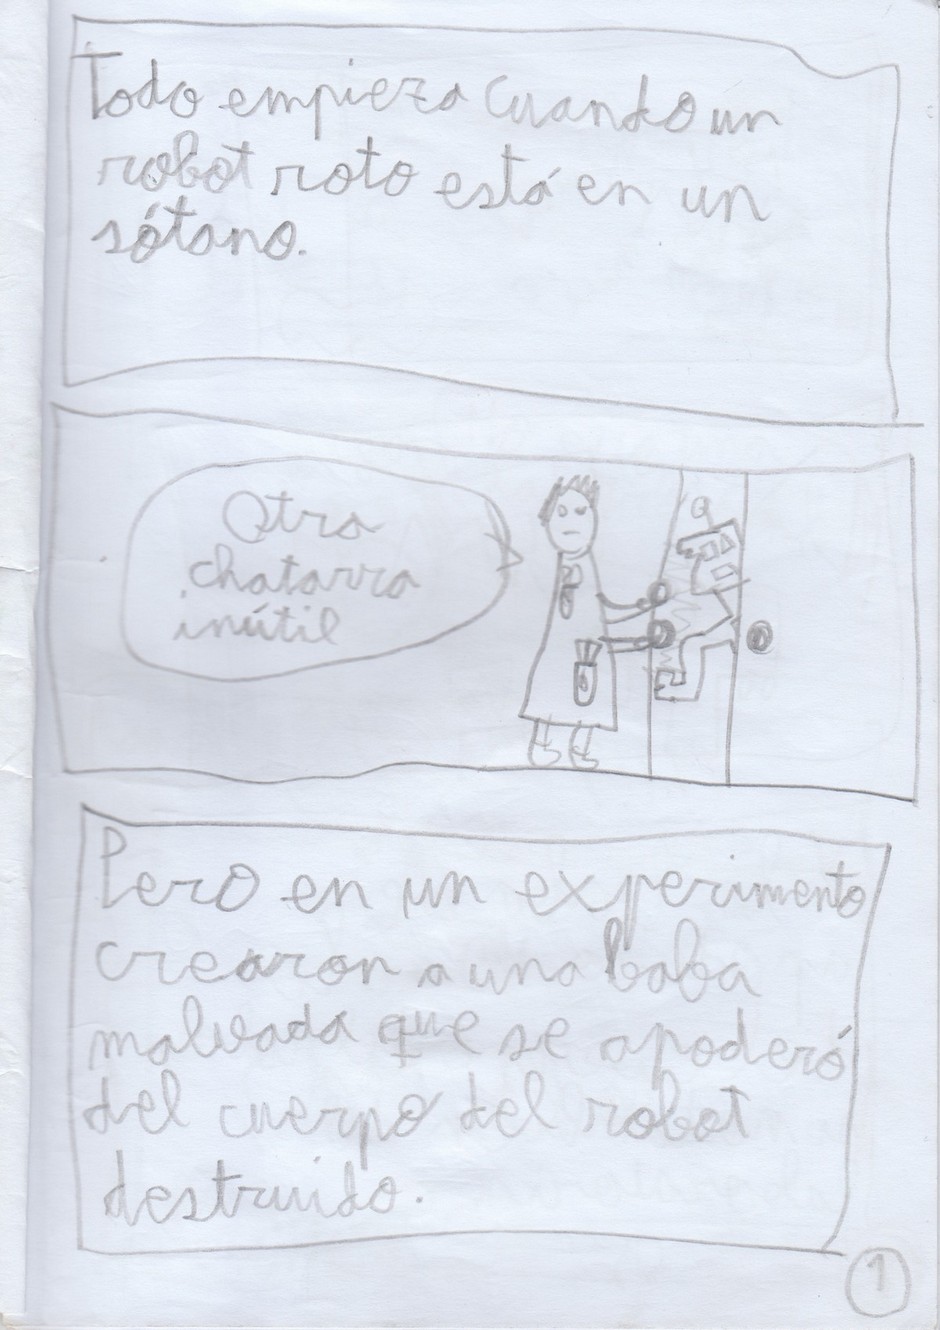 Todo empieza cuando un
robot roto está en un
sótano.
Otra
chatarra
inútil
Pero en un experimento
crearon a una baba
malvada que se apoderó
del cuerpo del robot
destruido.
1